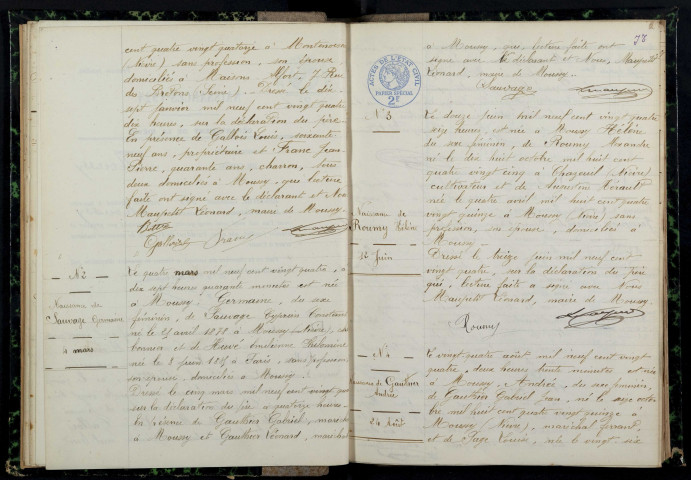 cent quatre vingt quatorze à
(Nièvre) sans profession, son épouse
domiciliés à Maisons Alfort, 7 Rue
des Bretons (Seine). Dressé le dix
sept janvier mil neuf cent vingt quatre
dix heures, sur la déclaration du père
En présence de Gallois Louis, soixante
neuf ans, propriétaire et Franc Jean
Pierre, quarante ans, charron, tous
deux domiciliés à Moussy, qui, lecture
faite ont signé avec le déclarant et Nous
Maupetit Léonard, maire de Moussy.
Gallois Franc
N° 2
Naissance de
Sauvage Germaine
4 mars
Le quatre mars mil neuf cent vingt quatre, à
dix sept heures quarante minutes est née
à Moussy: Germaine, du sexe
féminin, de Sauvage Cyprien Constant
né le 25 avril 1898 à Moussy (Nièvre),
et de Huvé Emilienne
née le 8 à Paris, sans profession
son épouse, domiciliés à Moussy.
Dressé le cinq mars mil neuf cent vingt quatre
sur la déclaration du père à quatorze heures
en présence de Gauthier Gabriel, maréchal
à Moussy et Gauthier Léonard, maréchal
78
à Moussy, qui, lecture faite ont
signé avec le déclarant et Nous, Maupetit
Léonard, maire de Moussy.
Sauvage
ACTES DE L'ETAT CIVIL
PAPIER SPECIAL
2F
N° 3
Naissance de
Roumy Hélène
12 Juin
Le douze juin mil neuf cent vingt quatre
seize heures, est née à Moussy Hélène
du sexe féminin, de Roumy
né le dix huit octobre mil huit cent
quatre vingt cinq à Chazeuil (Nièvre)
cultivateur et de
née le quatre avril mil huit cent quatre
vingt quinze à Moussy (Nièvre) sans
profession, son épouse, domiciliés à
Moussy.
Dressé le treize juin mil neuf cent
vingt quatre, sur la déclaration du père
qui, lecture faite a signé avec Nous
Maupetit Léonard, maire de Moussy.
Roumy
N° 4
Naissance de Gauthier
Andrée
24 Août
Le vingt quatre août mil neuf cent vingt
quatre, deux heures trente minutes est née
à Moussy Andrée, du sexe féminin,
de Gauthier Gabriel Jean, né le onze octo
bre mil huit cent quatre vingt quinze à
Moussy (Nièvre), maréchal ferrant,
et de Sage Louise, née le vingt six